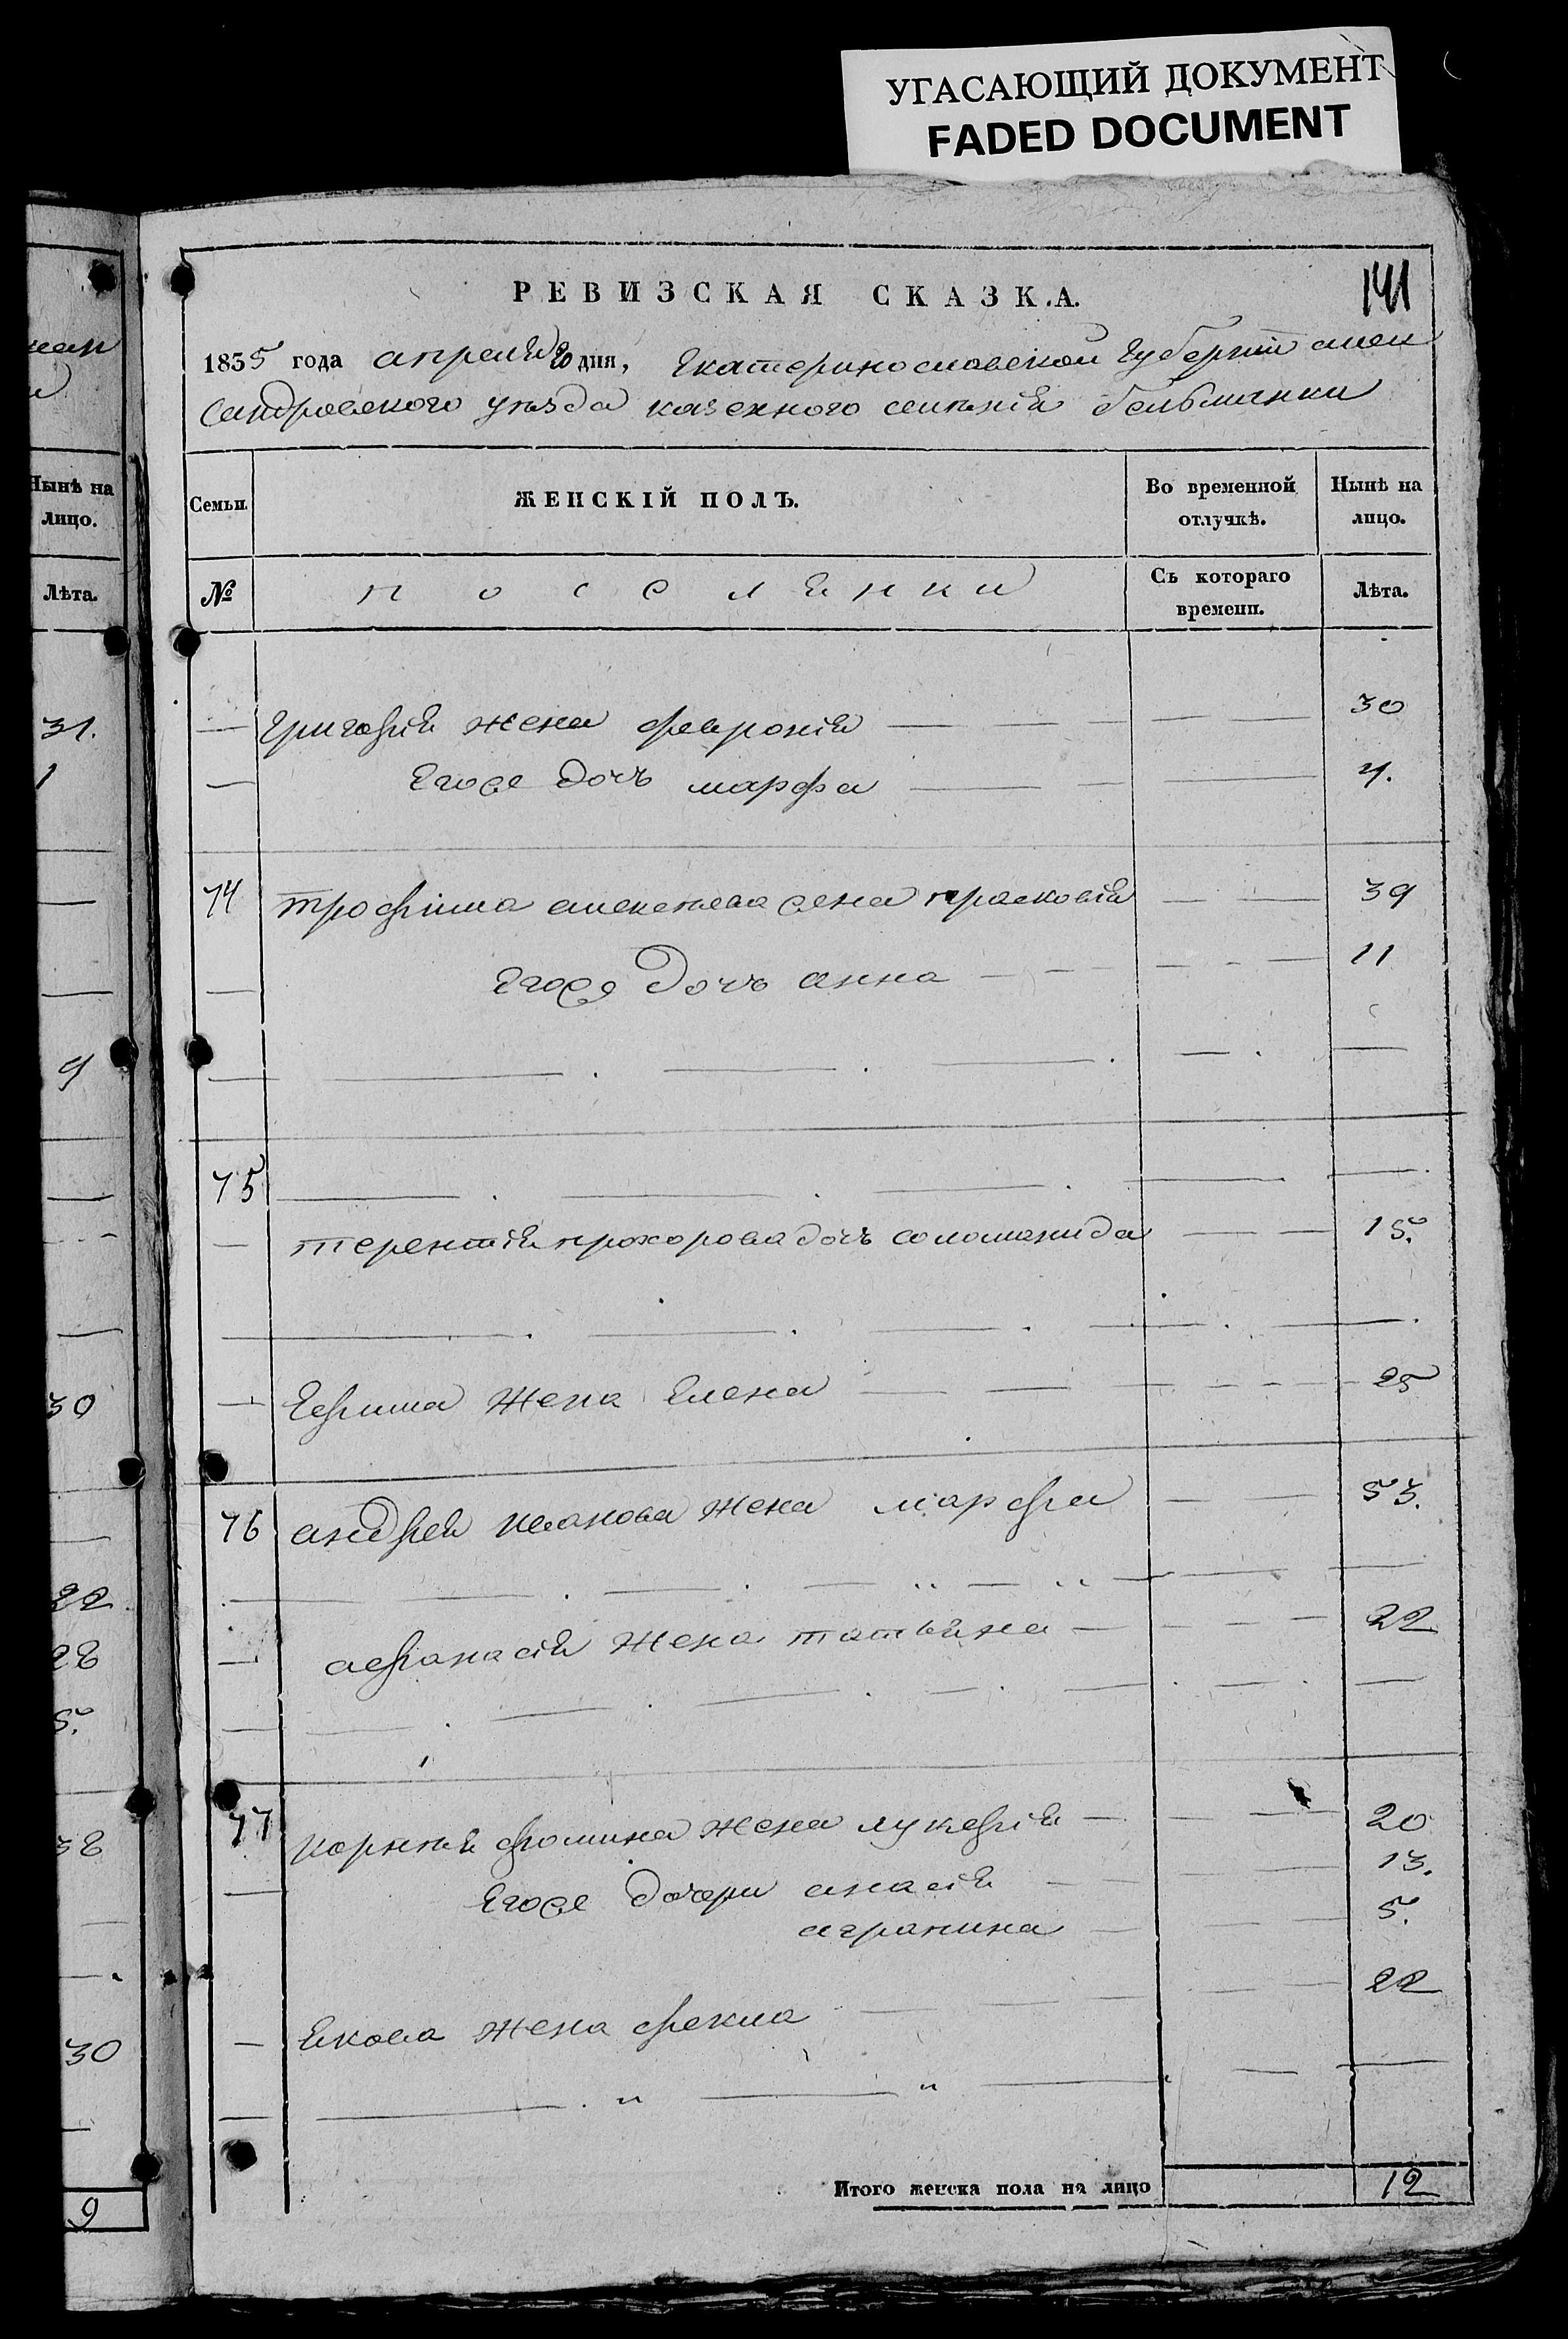 УГАСАЮЩИЙ ДОКУМЕНТ
FADED DOCUMENT
РЕВИЗСКАЯ СКАЗКА.
141
1835 года апреля 20 дня, Екатеринославской Губернии алек
сандровского уезда казенного селенія бельманки
Семьи.
ЖЕНСКІЙ ПОЛЪ.
Во временной отлучкѣ.
Нынѣ на лицо.
№
поселянки
Съ котораго времени.
Лѣта.
— Григорія жена феврония — 30
— Егоже дочь марфа — 4.
74 трофима алексѣева жена прасковія — 39
— Егоже Дочь анна — 11
75
— терентія прохорова дочь соломанида — 15.
— Ефима жена Елена — 25
76 андрея иванова жена марфа — 53.
— афанасія жена татьяна — 22
77 корнѣя фомина жена лукерія — 20
— Егоже дочери анасія — 13.
аграпина — 5.
— якова жена фекла — 22
Итого женска пола на лицо 12
Нынѣ на лицо.
Лѣта.
31.
1
9
30
22
28
5.
38
30
9